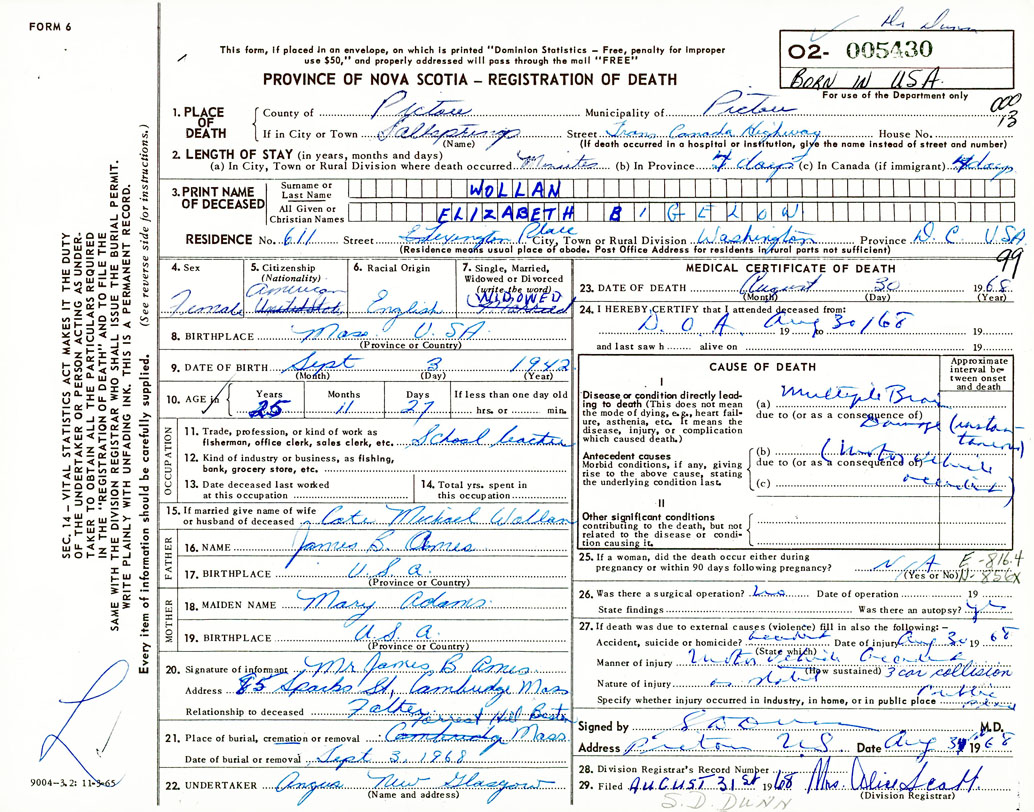 FORM 6
Dr Dunn
This form, if placed in an envelope, on which is printed "Dominion Statistics – Free, penalty for improper
use $50," and properly addressed will pass through the mail "FREE"
PROVINCE OF NOVA SCOTIA – REGISTRATION OF DEATH
02- 005430
BORN IN USA.
For use of the Department only
000
13
1. PLACE OF DEATH
County of Pictou Municipality of Pictou
If in City or Town Saltsprings Street Trans Canada Highway House No.
(Name) (If death occurred in a hospital or institution, give the name instead of street and number)
2. LENGTH OF STAY (in years, months and days)
(a) In City, Town or Rural Division where death occurred Minutes (b) In Province 4 days (c) In Canada (if immigrant) 4 days
3. PRINT NAME OF DECEASED
Surname or Last Name WOLLAN
All Given or Christian Names ELIZABETH BIGELOW
RESIDENCE No. 611 Street Lexington Place City, Town or Rural Division Washington Province D.C. USA
(Residence means usual place of abode. Post Office Address for residents in rural parts not sufficient)
99
4. Sex Female
5. Citizenship (Nationality) American
6. Racial Origin English
7. Single, Married, Widowed or Divorced (write the word) WIDOWED Married
8. BIRTHPLACE Mass U.S.A
(Province or Country)
9. DATE OF BIRTH Sept 3 1942
(Month) (Day) (Year)
10. AGE Years 25 Months 11 Days 27 If less than one day old
hrs. or min.
OCCUPATION
11. Trade, profession, or kind of work as
fisherman, office clerk, sales clerk, etc. School teacher
12. Kind of industry or business, as fishing,
bank, grocery store, etc.
13. Date deceased last worked at this occupation
14. Total yrs. spent in this occupation
15. If married give name of wife
or husband of deceased Late Michael Wollan
FATHER
16. NAME James B. Ames
17. BIRTHPLACE U.S.A.
(Province or Country)
MOTHER
18. MAIDEN NAME Mary Adams
19. BIRTHPLACE U.S.A.
(Province or Country)
20. Signature of informant Mr James B. Ames
Address 85 Sparks St, Cambridge Mass
Relationship to deceased Father
Forrest Hill Boston
21. Place of burial, cremation or removal Cambridge Mass
Date of burial or removal Sept 3, 1968
22. UNDERTAKER Angus New Glasgow
(Name and address)
MEDICAL CERTIFICATE OF DEATH
23. DATE OF DEATH August 30 1968
(Month) (Day) (Year)
24. I HEREBY CERTIFY that I attended deceased from:
D.O.A. Aug 30/68 19 to 19
and last saw h alive on 19
CAUSE OF DEATH
Approximate interval between onset and death
I
Disease or condition directly leading to death (This does not mean the mode of dying, e.g., heart failure, asthenia, etc. It means the disease, injury, or complication which caused death.)
(a) Multiple Brain
due to (or as a consequence of)
Damage (instantaneous)
Antecedent causes
Morbid conditions, if any, giving rise to the above cause, stating the underlying condition last.
(b) (Motor vehicle
due to (or as a consequence of)
(c) accident)
II
Other significant conditions
contributing to the death, but not related to the disease or condition causing it.
25. If a woman, did the death occur either during
pregnancy or within 90 days following pregnancy? N/A
(Yes or No)
E-816.4
N-856X
26. Was there a surgical operation? Date of operation 19
State findings Was there an autopsy? yes
27. If death was due to external causes (violence) fill in also the following: –
Accident, suicide or homicide? accident Date of injury Aug 30 1968
(State which)
Manner of injury Motor vehicle accident
(How sustained) 3 car collision
Nature of injury as stated
Specify whether injury occurred in industry, in home, or in public place Public place
Signed by M.D.
Address Pictou N.S. Date Aug 31 1968
28. Division Registrar's Record Number
29. Filed AUGUST 31st 1968 Mrs. Olive Scott
(Division Registrar)
S.D. DUNN
SEC. 14 – VITAL STATISTICS ACT MAKES IT THE DUTY
OF THE UNDERTAKER OR PERSON ACTING AS UNDER-
TAKER TO OBTAIN ALL THE PARTICULARS REQUIRED
IN THE "REGISTRATION OF DEATH" AND TO FILE THE
SAME WITH THE DIVISION REGISTRAR WHO SHALL ISSUE THE BURIAL PERMIT.
WRITE PLAINLY WITH UNFADING INK. THIS IS A PERMANENT RECORD.
Every item of information should be carefully supplied. (See reverse side for instructions.)
9004-3.2: 11-3-65